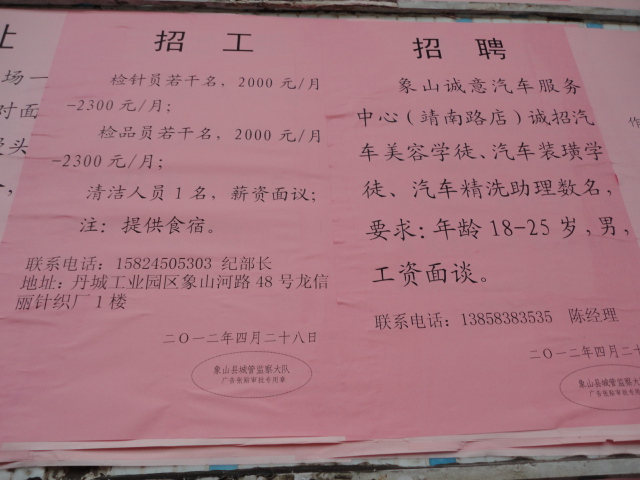 上
场一
对面
招工
检针员若干名，2000元/月
-2300元/月；
检品员若干名，2000元/月
-2300元/月；
清洁人员1名，薪资面议；
注：提供食宿。
联系电话：15824505303 纪部长
地址：丹城工业园区象山河路48号龙信
丽针织厂1楼
二〇一二年四月二十八日
象山县城管监察大队
广告张贴审批专用章
招聘
象山诚意汽车服务
中心（靖南路店）诚招汽
车美容学徒、汽车装璜学
徒、汽车精洗助理数名，
要求：年龄18-25岁，男，
工资面谈。
联系电话：13858383535 陈经理
二〇一二年四月二十
象山县城管监察大队
广告张贴审批专用章